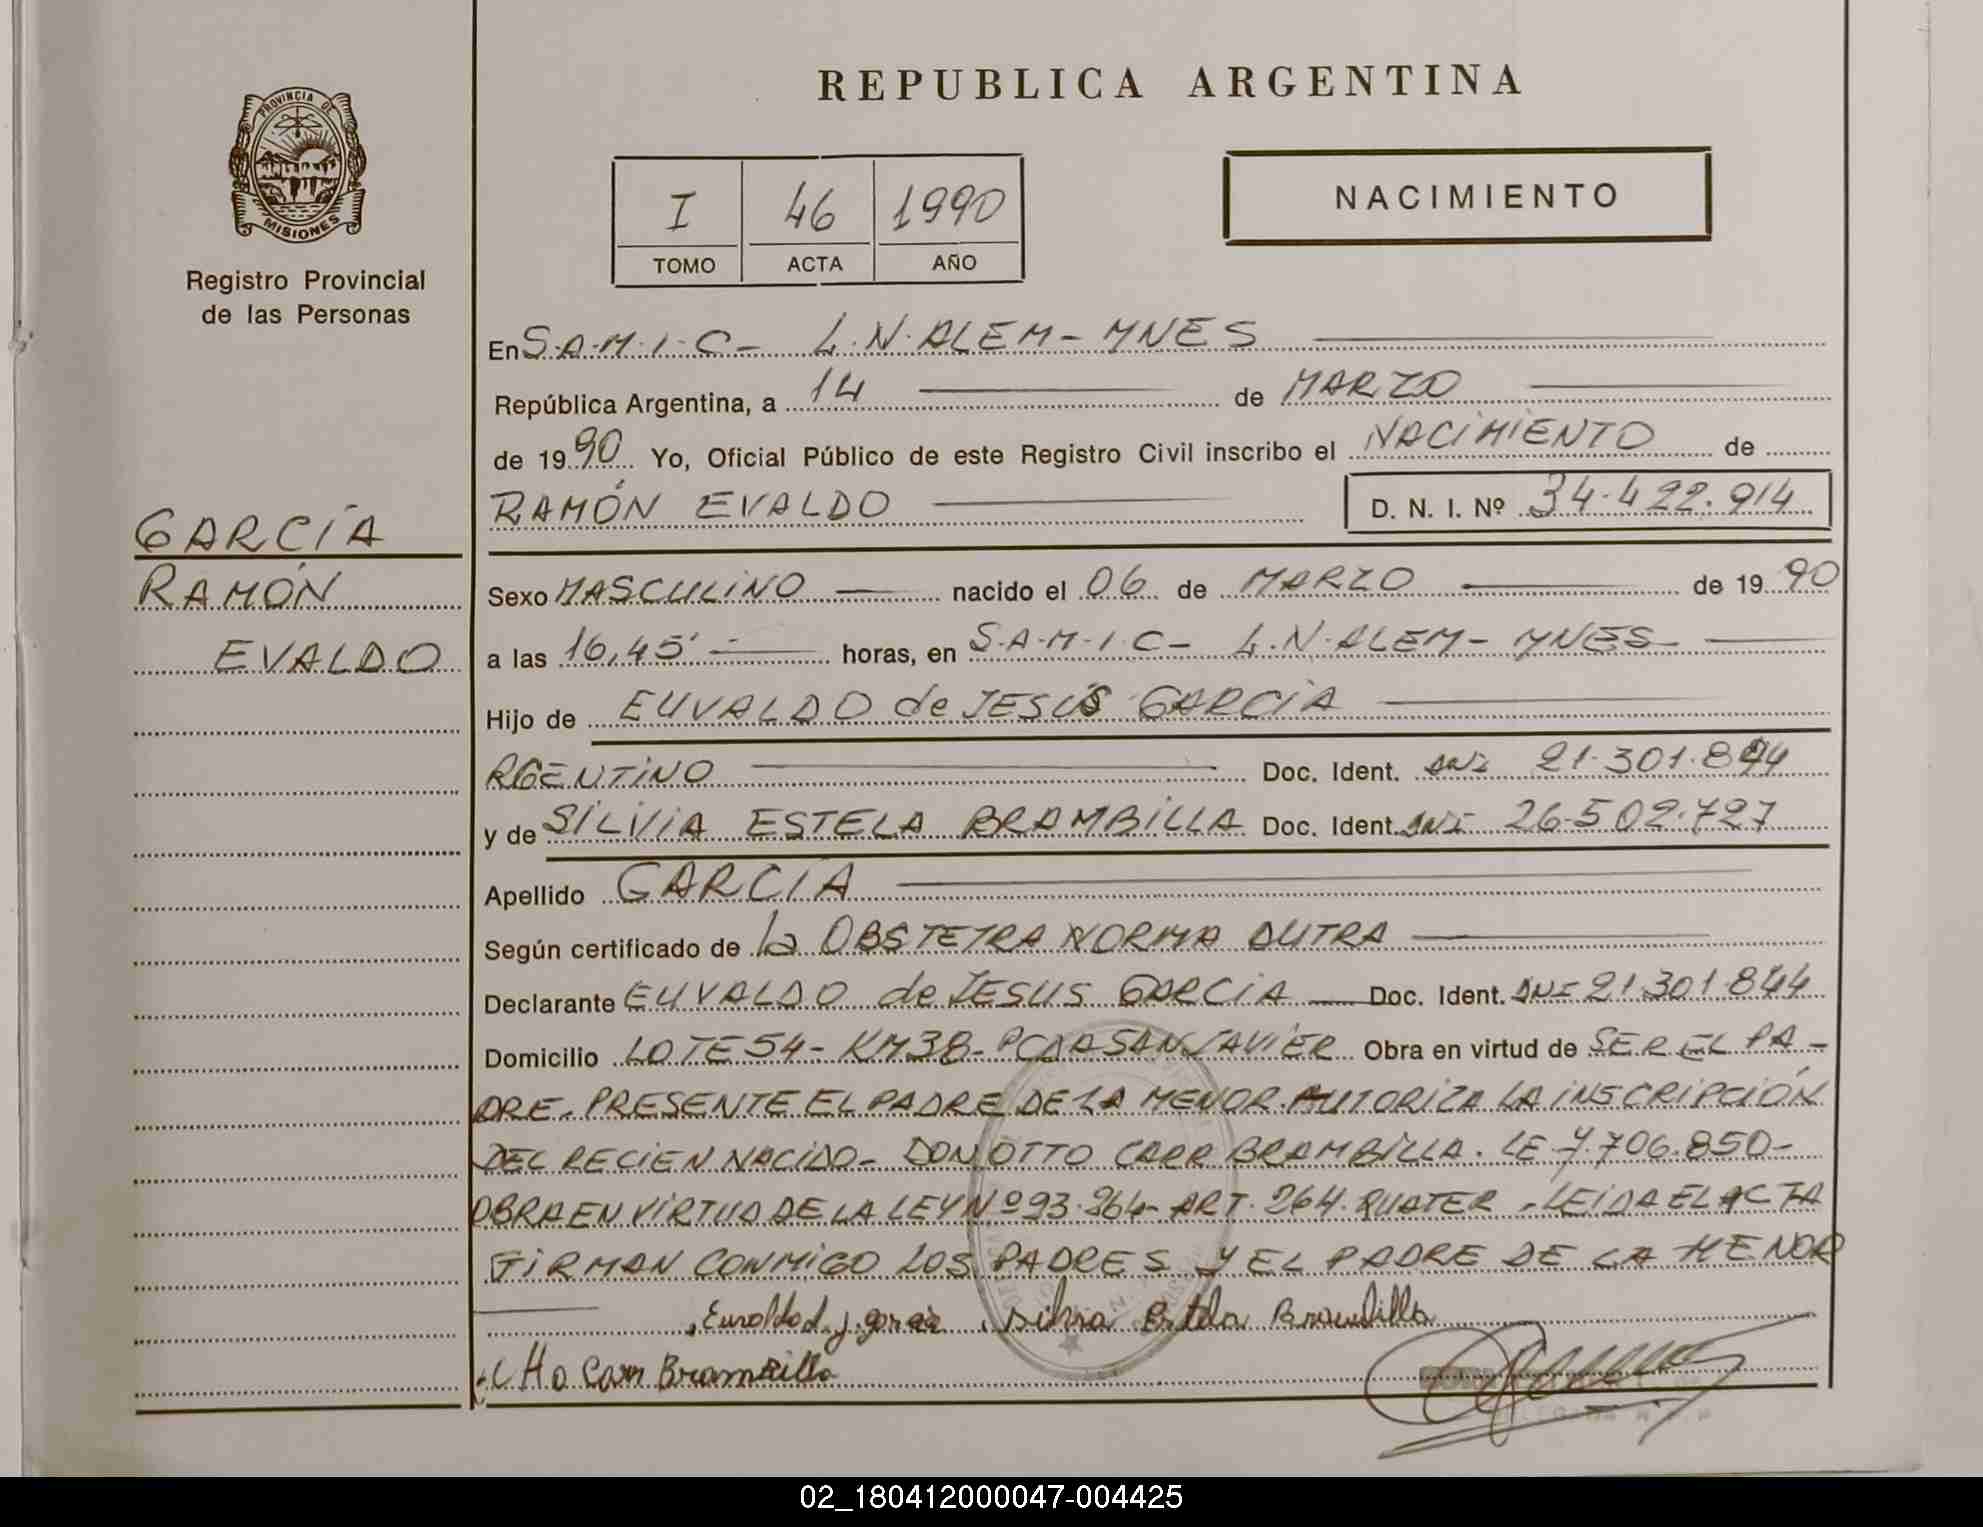 REPUBLICA ARGENTINA
PROVINCIA DE
MISIONES
Registro Provincial
de las Personas
I 46 1990
TOMO ACTA AÑO
NACIMIENTO
En S.A.M.I.C - L.N. ALEM - MNES
República Argentina, a 14 de MARZO
de 1990 Yo, Oficial Público de este Registro Civil inscribo el NACIMIENTO de
RAMÓN EVALDO D. N. I. Nº 34.422.914
GARCÍA
RAMÓN
EVALDO
Sexo MASCULINO nacido el 06 de MARZO de 1990
a las 16,45' horas, en S.A.M.I.C - L.N. ALEM - MNES
Hijo de EUVALDO de JESÚS GARCIA
RGENTINO Doc. Ident. DNI 21.301.844
y de SILVIA ESTELA BRAMBILLA Doc. Ident. DNI 26.502.727
Apellido GARCÍA
Según certificado de la OBSTETRA NORMA DUTRA
Declarante EUVALDO de JESUS GARCIA Doc. Ident. DNI 21.301.844
Domicilio LOTE 54 - KM 38 - PCDA SAN JAVIER Obra en virtud de SER EL PA-
DRE. PRESENTE EL PADRE DE LA MENOR. AUTORIZA LA INSCRIPCIÓN
DEL RECIEN NACIDO - DON OTTO CARR BRAMBILLA. LE 7.706.850 -
OBRA EN VIRTUD DE LA LEY Nº 23.264 - ART. 264. QUATER - LEIDA EL ACTA
FIRMAN CONMIGO LOS PADRES Y EL PADRE DE LA MENOR
Euvaldo d. j. garcia Silvia Estela Brambilla
Otto Carr Brambilla
02_180412000047-004425